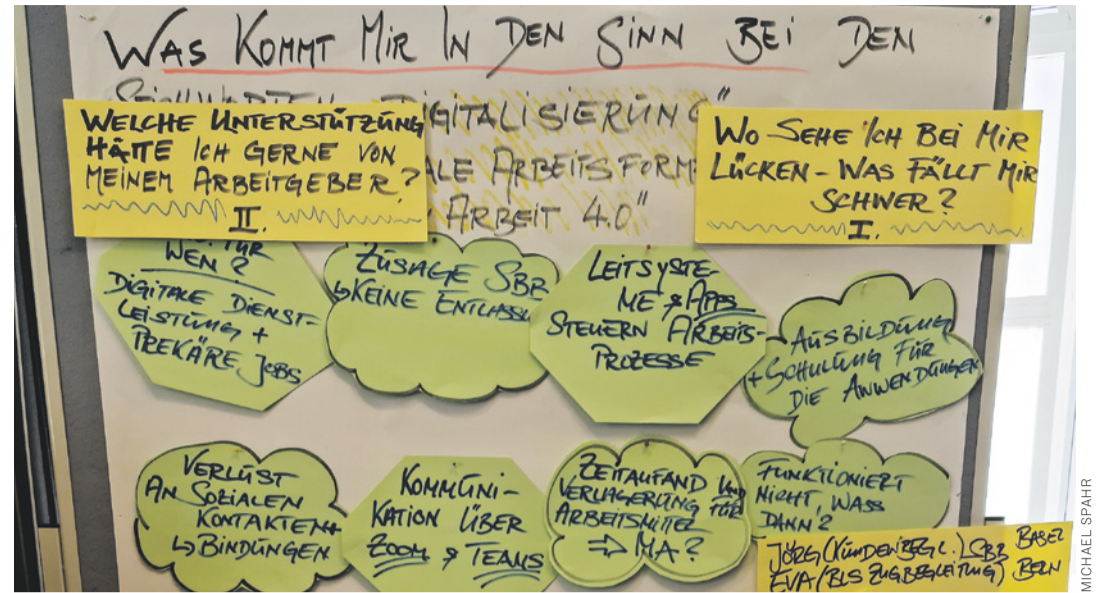 WAS KOMMT MIR IN DEN SINN BEI DEN
DIGITALISIERUNG"
ARBEITSFORM
ARBEIT 4.0"
WELCHE UNTERSTÜTZUNG
HÄTTE ICH GERNE VON
MEINEM ARBEITGEBER?
II.
WO SEHE ICH BEI MIR
LÜCKEN - WAS FÄLLT MIR
SCHWER?
I.
WEN?
DIGITALE DIENST-
LEISTUNG +
PREKÄRE JOBS
ZUSAGE SBB
↳ KEINE ENTLASS
LEITSYSTE-
ME & APPS
STEUERN ARBEITS-
PROZESSE
AUSBILDUNG
+ SCHULUNG FÜR
DIE ANWENDUNGEN
VERLUST
AN SOZIALEN
KONTAKTEN +
↳ BINDUNGEN
KOMMUNI-
KATION ÜBER
ZOOM & TEAMS
ZEITAUFAND UND
VERLAGERUNG FÜR
ARBEITSMITTEL
⇒ MA?
FUNKTIONIERT
NICHT, WASS
DANN?
JÖRG (KUNDENBEGL.) SBB BASEL
EVA (BLS ZUGBEGLEITUNG) BERN
MICHAEL SPAHR